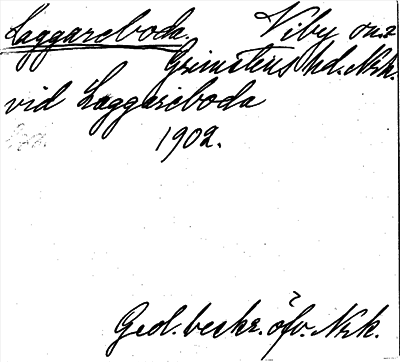 Laggareboda. Viby sn.
Grimstens hd. Nrk.
vid Laggareboda
1902.
Geol. beskr. öfv. Nrk.